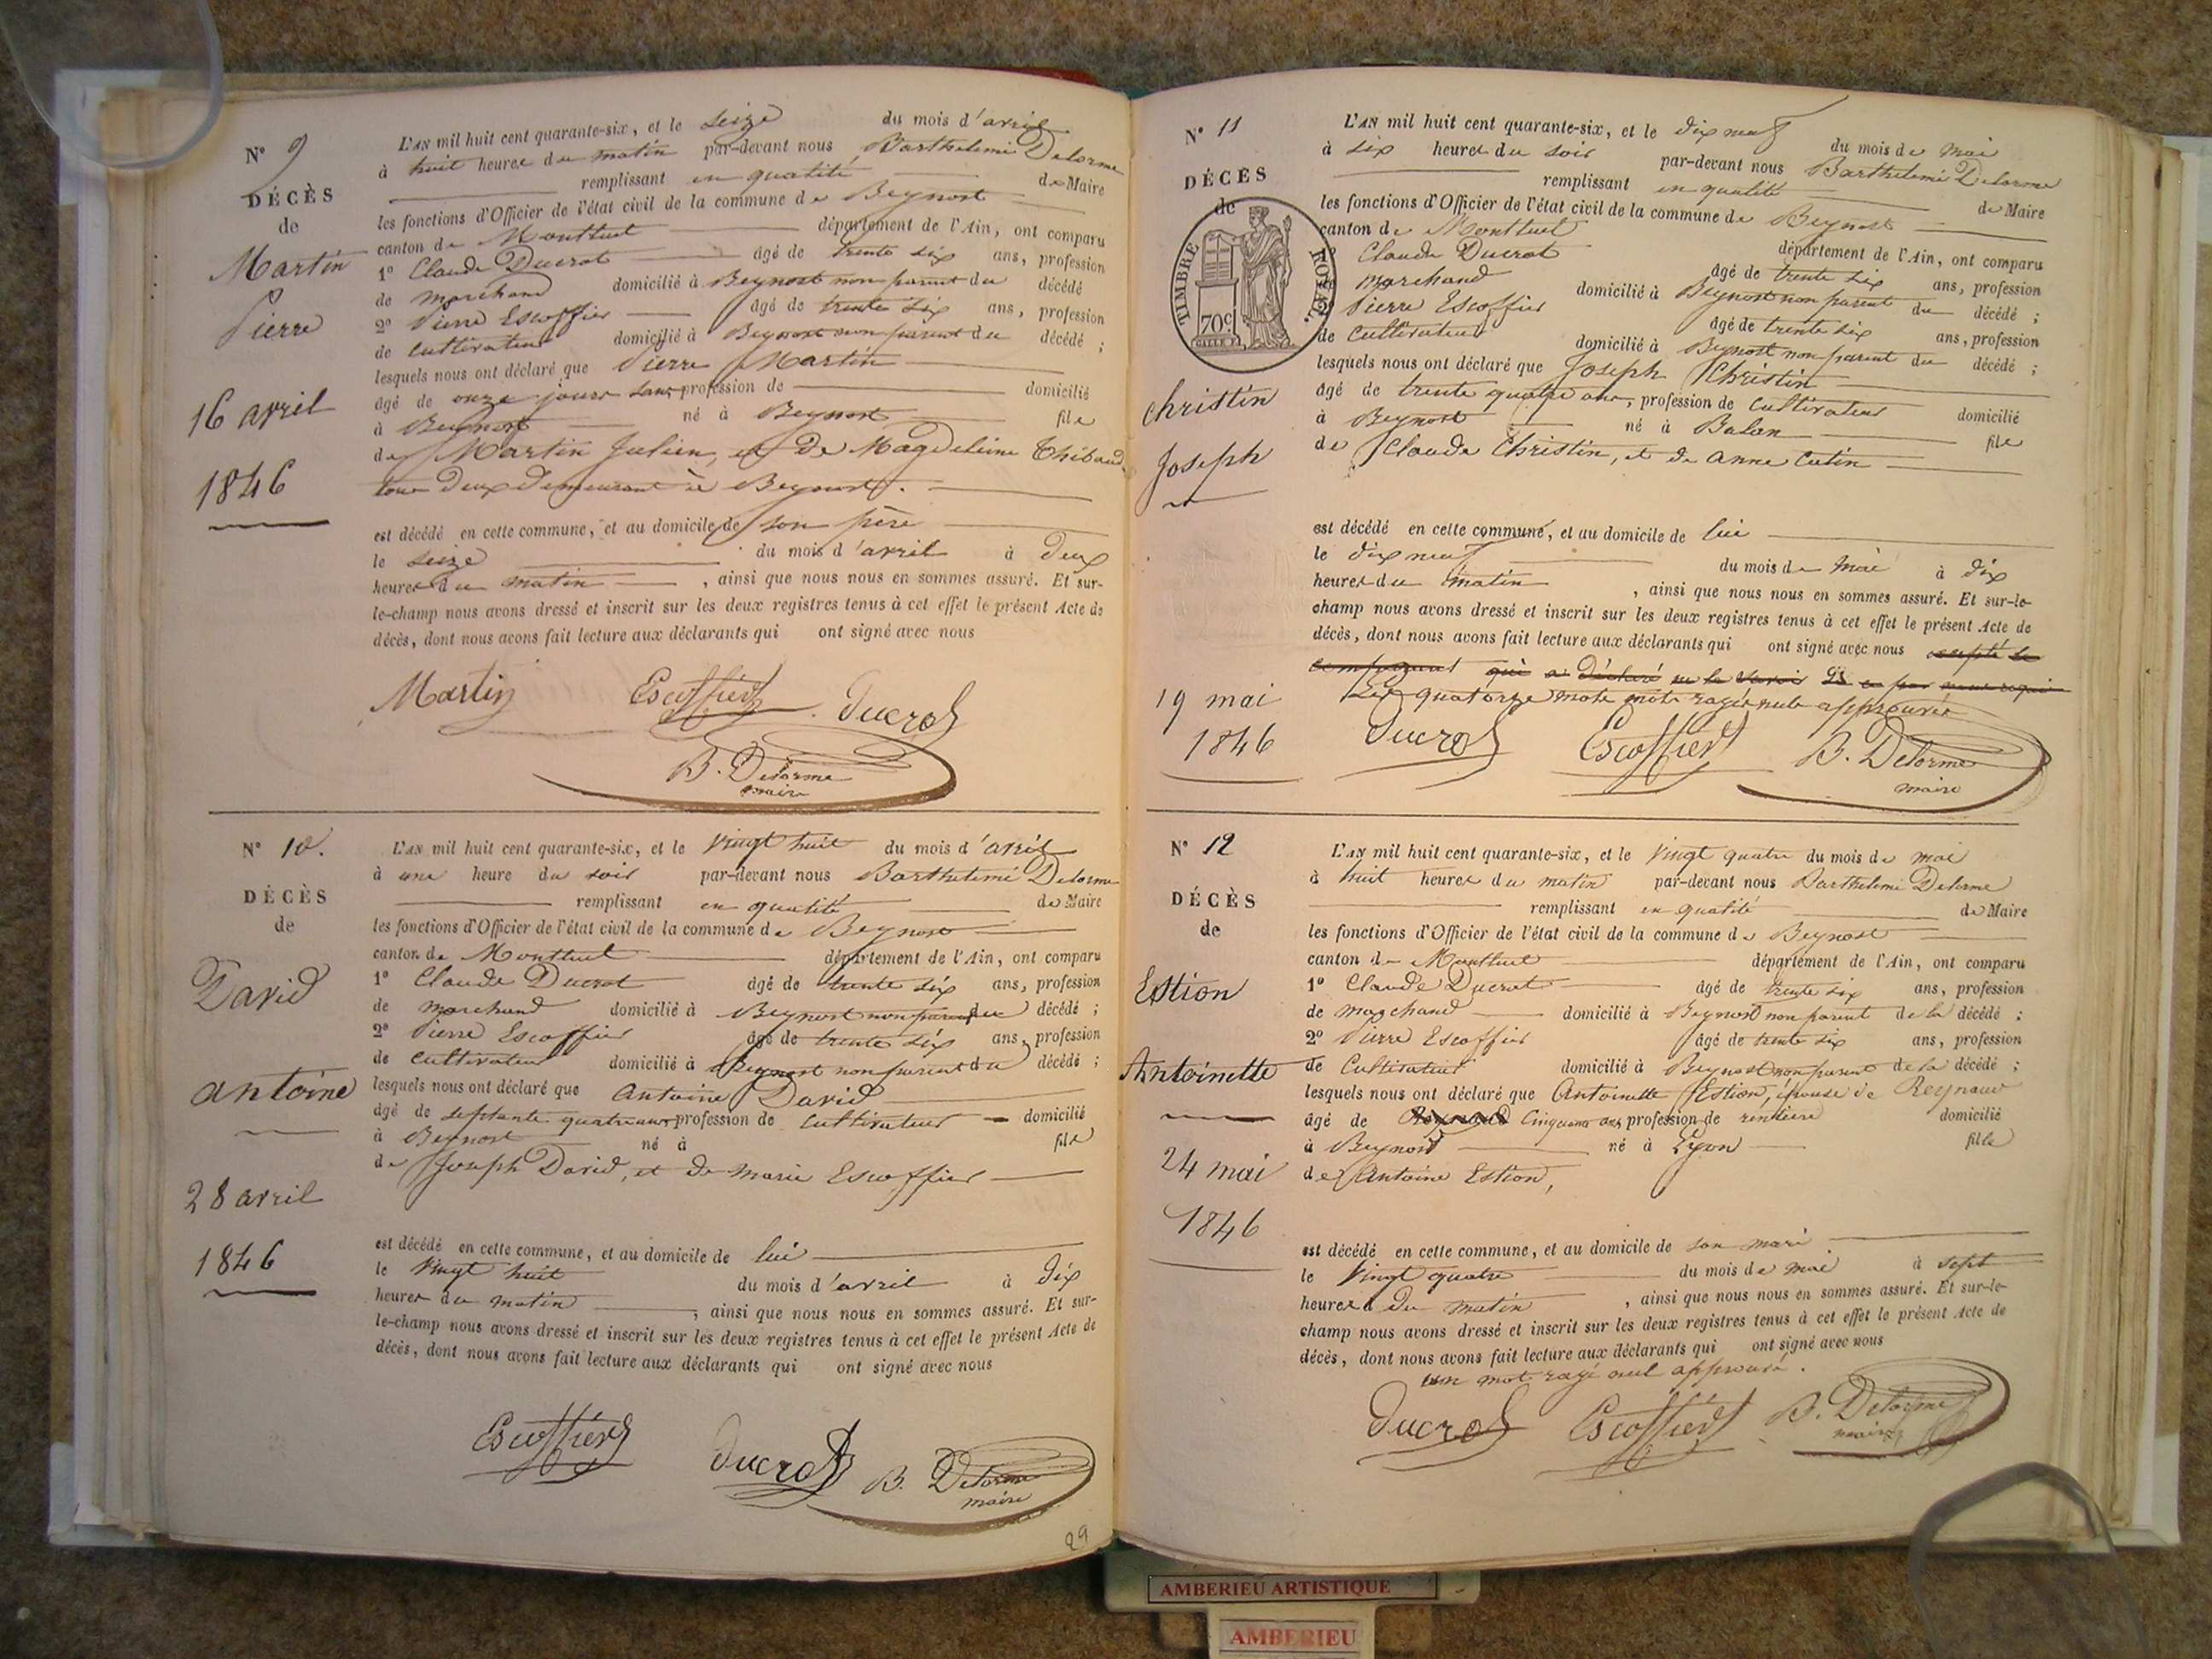 N° 9
DÉCÈS
de
Martin
Pierre
16 avril
1846
L'AN mil huit cent quarante-six, et le seize du mois d'avril
à huit heures du matin par-devant nous Barthelemi Delorme
remplissant en qualité de Maire
les fonctions d'Officier de l'état civil de la commune de Beynost
canton de Montluel département de l'Ain, ont comparu
1° Claude Ducrot âgé de trente six ans, profession
de marchand domicilié à Beynost non parent du décédé
2° Pierre Escoffier âgé de trente six ans, profession
de cultivateur domicilié à Beynost non parent du décédé ;
lesquels nous ont déclaré que Pierre Martin
âgé de onze jours sans profession de domicilié
à Beynost né à Beynost fils
de Martin Julien, et de Magdeleine Thibaud
tous deux demeurant à Beynost.
est décédé en cette commune, et au domicile de son père
le seize du mois d'avril à deux
heures du matin , ainsi que nous nous en sommes assuré. Et sur-
le-champ nous avons dressé et inscrit sur les deux registres tenus à cet effet le présent Acte de
décès, dont nous avons fait lecture aux déclarants qui ont signé avec nous
Martin Escoffier Ducrot
B. Delorme
maire
N° 10.
DÉCÈS
de
David
antoine
28 avril
1846
L'AN mil huit cent quarante-six, et le vingt huit du mois d'avril
à une heure du soir par-devant nous Barthelemi Delorme
remplissant en qualité de Maire
les fonctions d'Officier de l'état civil de la commune de Beynost
canton de Montluel département de l'Ain, ont comparu
1° Claude Ducrot âgé de trente six ans, profession
de marchand domicilié à Beynost non parent du décédé ;
2° Pierre Escoffier âgé de trente six ans, profession
de cultivateur domicilié à Beynost non parent du décédé ;
lesquels nous ont déclaré que Antoine David
âgé de septante quatre ans profession de cultivateur domicilié
à Beynost né à fils
de Joseph David, et de marie Escoffier
est décédé en cette commune, et au domicile de lui
le vingt huit du mois d'avril à dix
heures du matin , ainsi que nous nous en sommes assuré. Et sur-
le-champ nous avons dressé et inscrit sur les deux registres tenus à cet effet le présent Acte de
décès, dont nous avons fait lecture aux déclarants qui ont signé avec nous
Escoffier Ducrot B. Delorme
maire
29
N° 11
DÉCÈS
de
TIMBRE ROYAL
70c
christin
Joseph
19 mai
1846
L'AN mil huit cent quarante-six, et le dix neuf du mois de mai
à six heures du soir par-devant nous Barthelemi Delorme
remplissant en qualité de Maire
les fonctions d'Officier de l'état civil de la commune de Beynost
canton de Montluel département de l'Ain, ont comparu
Claude Ducrot âgé de trente six ans, profession
marchand domicilié à Beynost non parent du décédé ;
Pierre Escoffier âgé de trente six ans, profession
de cultivateur domicilié à Beynost non parent du décédé ;
lesquels nous ont déclaré que Joseph Christin
âgé de trente quatre ans, profession de cultivateur domicilié
à Beynost né à Balan fils
de Claude Christin, et de anne Cutin
est décédé en cette commune, et au domicile de lui
le dix neuf du mois de mai à dix
heures du matin , ainsi que nous nous en sommes assuré. Et sur-le-
champ nous avons dressé et inscrit sur les deux registres tenus à cet effet le présent Acte de
décès, dont nous avons fait lecture aux déclarants qui ont signé avec nous
qui a déclaré ne le savoir
quatorze mots rayés nuls approuvés
Ducrot Escoffier B. Delorme
maire
N° 12
DÉCÈS
de
Estion
Antoinette
24 mai
1846
L'AN mil huit cent quarante-six, et le vingt quatre du mois de mai
à huit heures du matin par-devant nous Barthelemi Delorme
remplissant en qualité de Maire
les fonctions d'Officier de l'état civil de la commune de Beynost
canton de Montluel département de l'Ain, ont comparu
1° Claude Ducrot âgé de trente six ans, profession
de marchand domicilié à Beynost non parent de la décédé ;
2° Pierre Escoffier âgé de trente six ans, profession
de Cultivateur domicilié à Beynost non parent de la décédé ;
lesquels nous ont déclaré que Antoinette Estion, épouse de Reynaud
âgé de Cinquante ans profession de rentière domicilié
à Beynost né à Lyon fille
de Antoine Estion,
est décédé en cette commune, et au domicile de son mari
le vingt quatre du mois de mai à sept
heures du matin , ainsi que nous nous en sommes assuré. Et sur-le-
champ nous avons dressé et inscrit sur les deux registres tenus à cet effet le présent Acte de
décès, dont nous avons fait lecture aux déclarants qui ont signé avec nous
un mot rayé nul approuvé.
Ducrot Escoffier B. Delorme
maire
AMBERIEU ARTISTIQUE
AMBERIEU